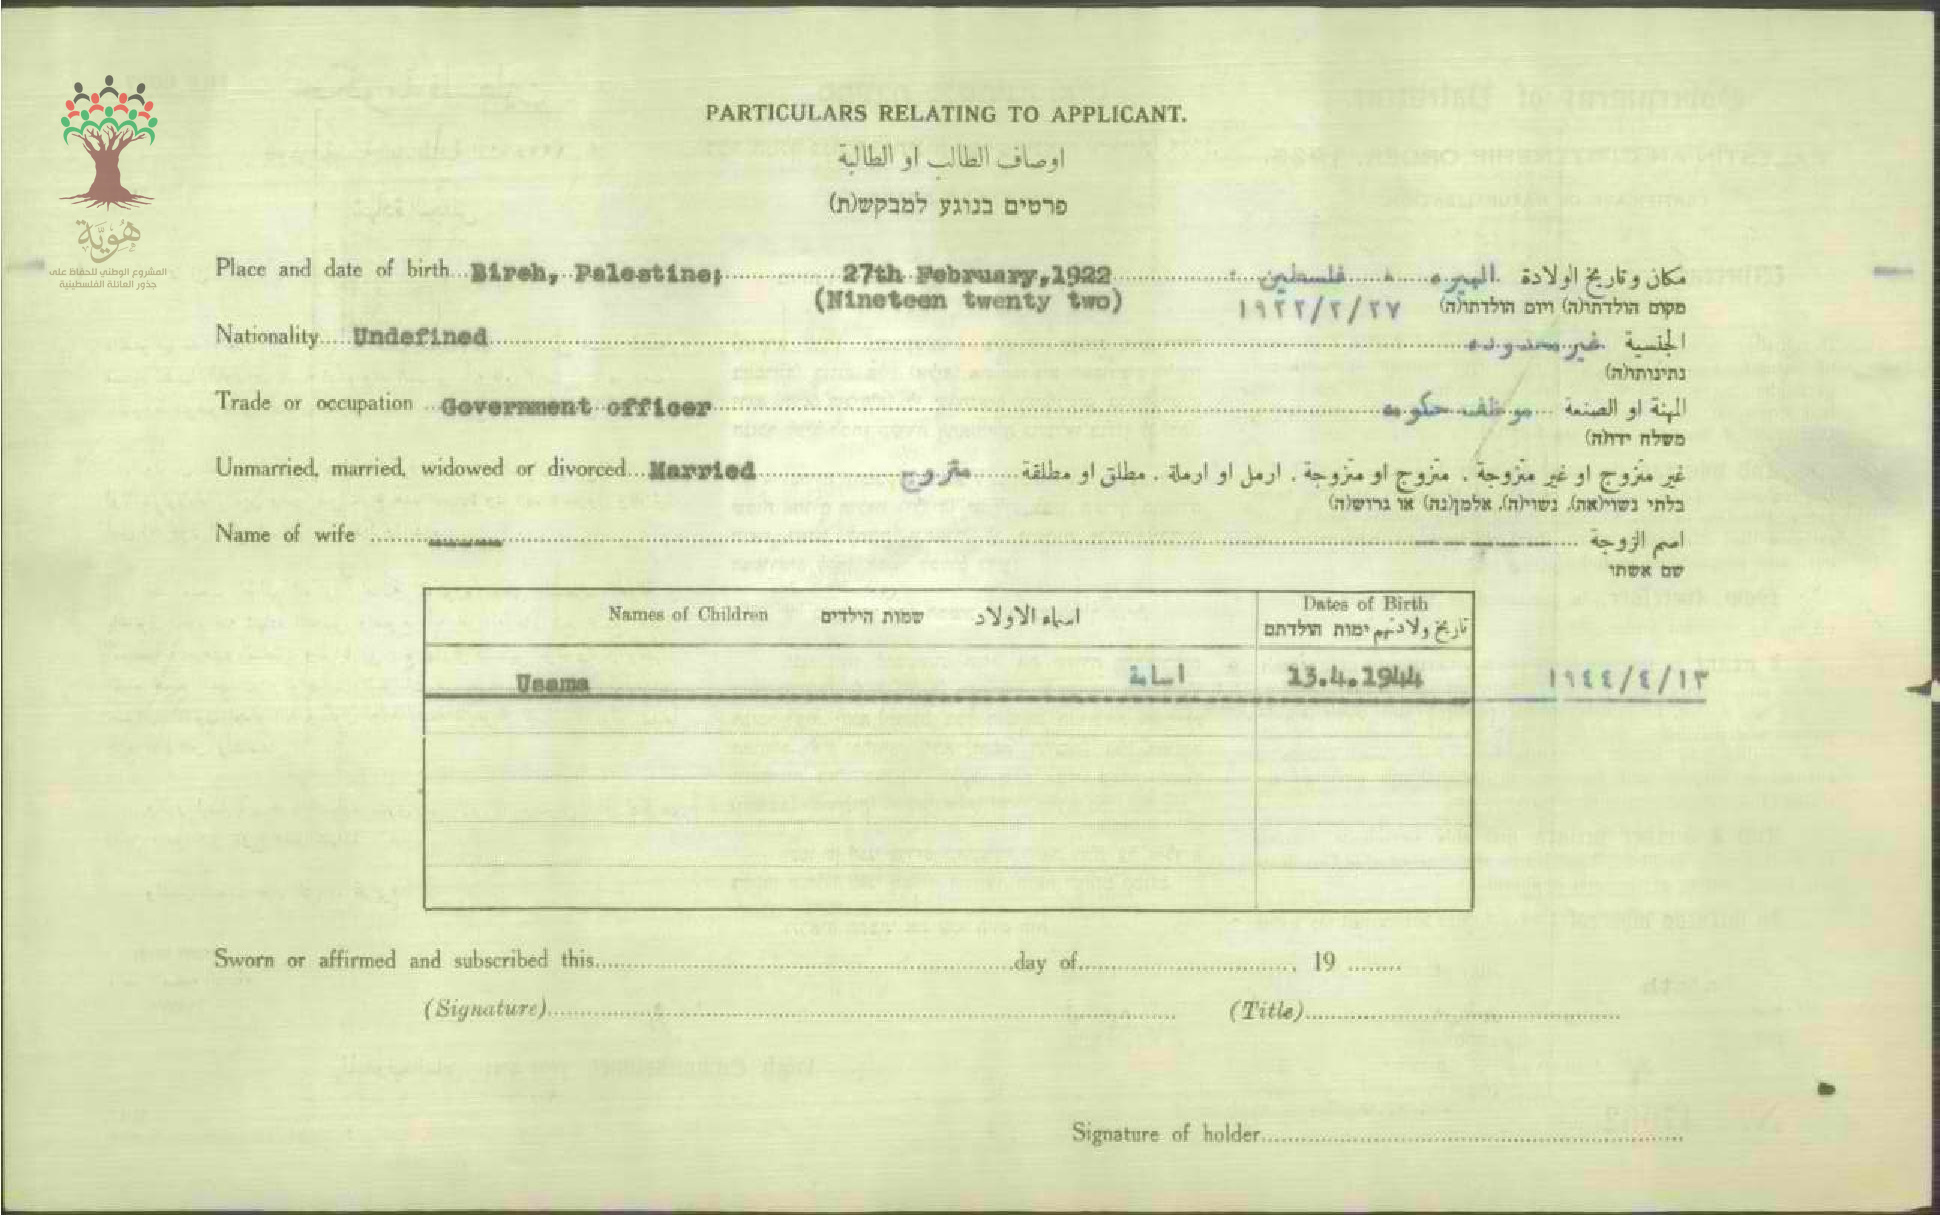 PARTICULARS RELATING TO APPLICANT.
اوصاف الطالب او الطالبة
פרטים בנוגע למבקש(ת)
هُوِيَّة
المشروع الوطني للحفاظ على
جذور العائلة الفلسطينية
Place and date of birth Bireh, Palestine; 27th February,1922 البيره ، فلسطين ، مكان وتاريخ الولادة
(Nineteen twenty two) ١٩٢٢/٢/٢٧ מקום הולדתו(ה) ויום הולדתו(ה)
Nationality Undefined غير محدوده الجنسية
נתינותו(ה)
Trade or occupation Government officer موظف حكومه المهنة او الصنعة
משלח ידו(ה)
Unmarried, married, widowed or divorced Married متزوج غير متزوج او غير متزوجة ، متزوج او متزوجة ، ارمل او ارملة ، مطلق او مطلقة
בלתי נשוי(אה), נשוי(ה), אלמן(נה) או גרוש(ה)
Name of wife اسم الزوجة
שם אשתו
Names of Children שמות הילדים اسماء الاولاد Dates of Birth
تاريخ ولادتهم ימות הולדתם
Usama اسامة 13.4.1944 ١٩٤٤/٤/١٣
Sworn or affirmed and subscribed this day of 19
(Signature) (Title)
Signature of holder